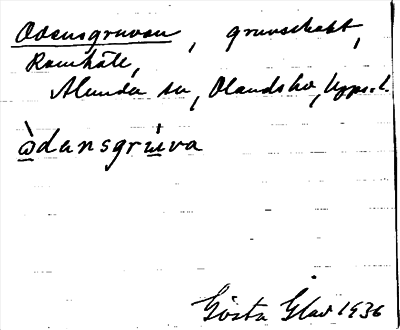 Odensgruvan, gruvschakt,
Ramhäll,
Alunda sn, Olands hd, Upps. l.
ὼdansgrùva
Gösta Glad 1936